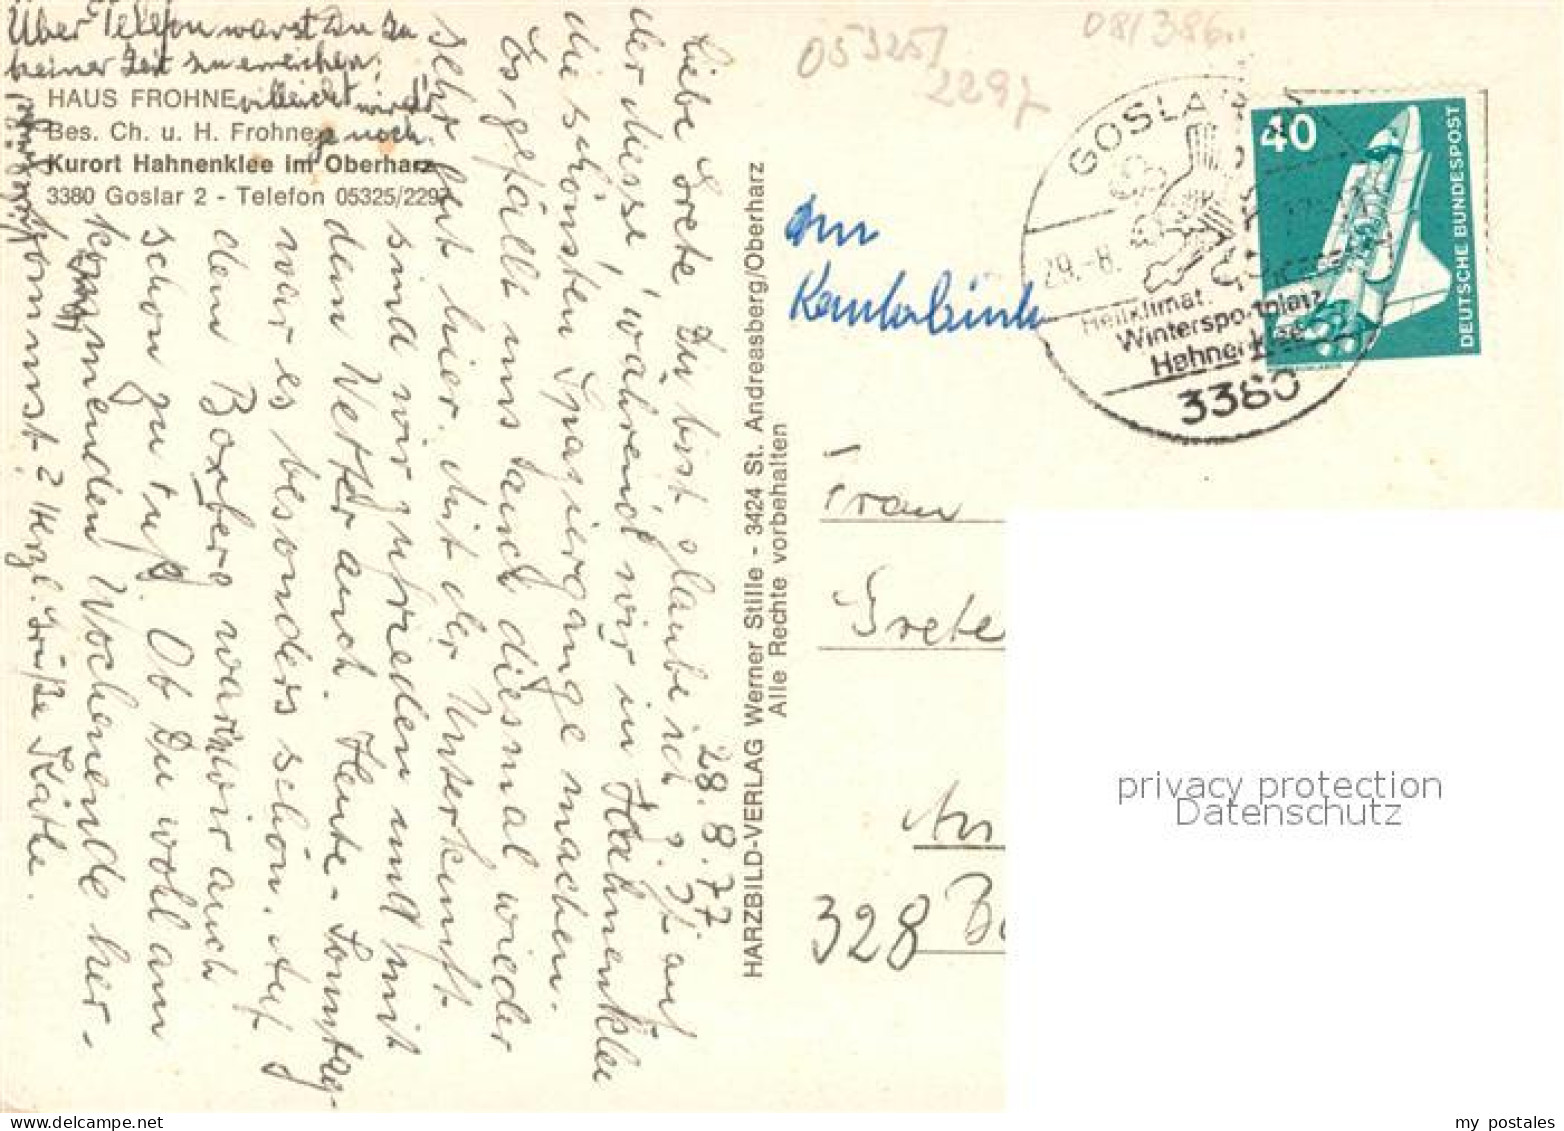 Über Telefon warst Du zu
keiner Zeit zu erreichen,
vielleicht wird's
ja noch.
HAUS FROHNE
Bes. Ch. u. H. Frohne
Kurort Hahnenklee im Oberharz
3380 Goslar 2 - Telefon 05325/2297
28.8.77
Liebe Grete, Du bist glaube ich z. Zt. auf
der Messe, während wir in Hahnenklee
die schönsten Spaziergänge machen.
Es gefällt uns auch diesmal wieder
sehr gut hier. Mit der Unterkunft
sind wir zufrieden und mit
dem Wetter auch. Heute - Sonntag -
war es besonders schön. Auf
dem Bocksberg waren wir auch
schon zu Fuß. Ob Du wohl am
kommenden Wochenende her-
kommst? Herzl. Grüße Käthe.
HARZBILD-VERLAG Werner Stille - 3424 St. Andreasberg/Oberharz
Alle Rechte vorbehalten
05325/
2297
081386
GOSLAR
29.-8.
Heilklimat.
Wintersportplatz
Hahnenklee
3380
40
DEUTSCHE BUNDESPOST
Frau
Grete
Am
328 B
privacy protection
Datenschutz
my postales